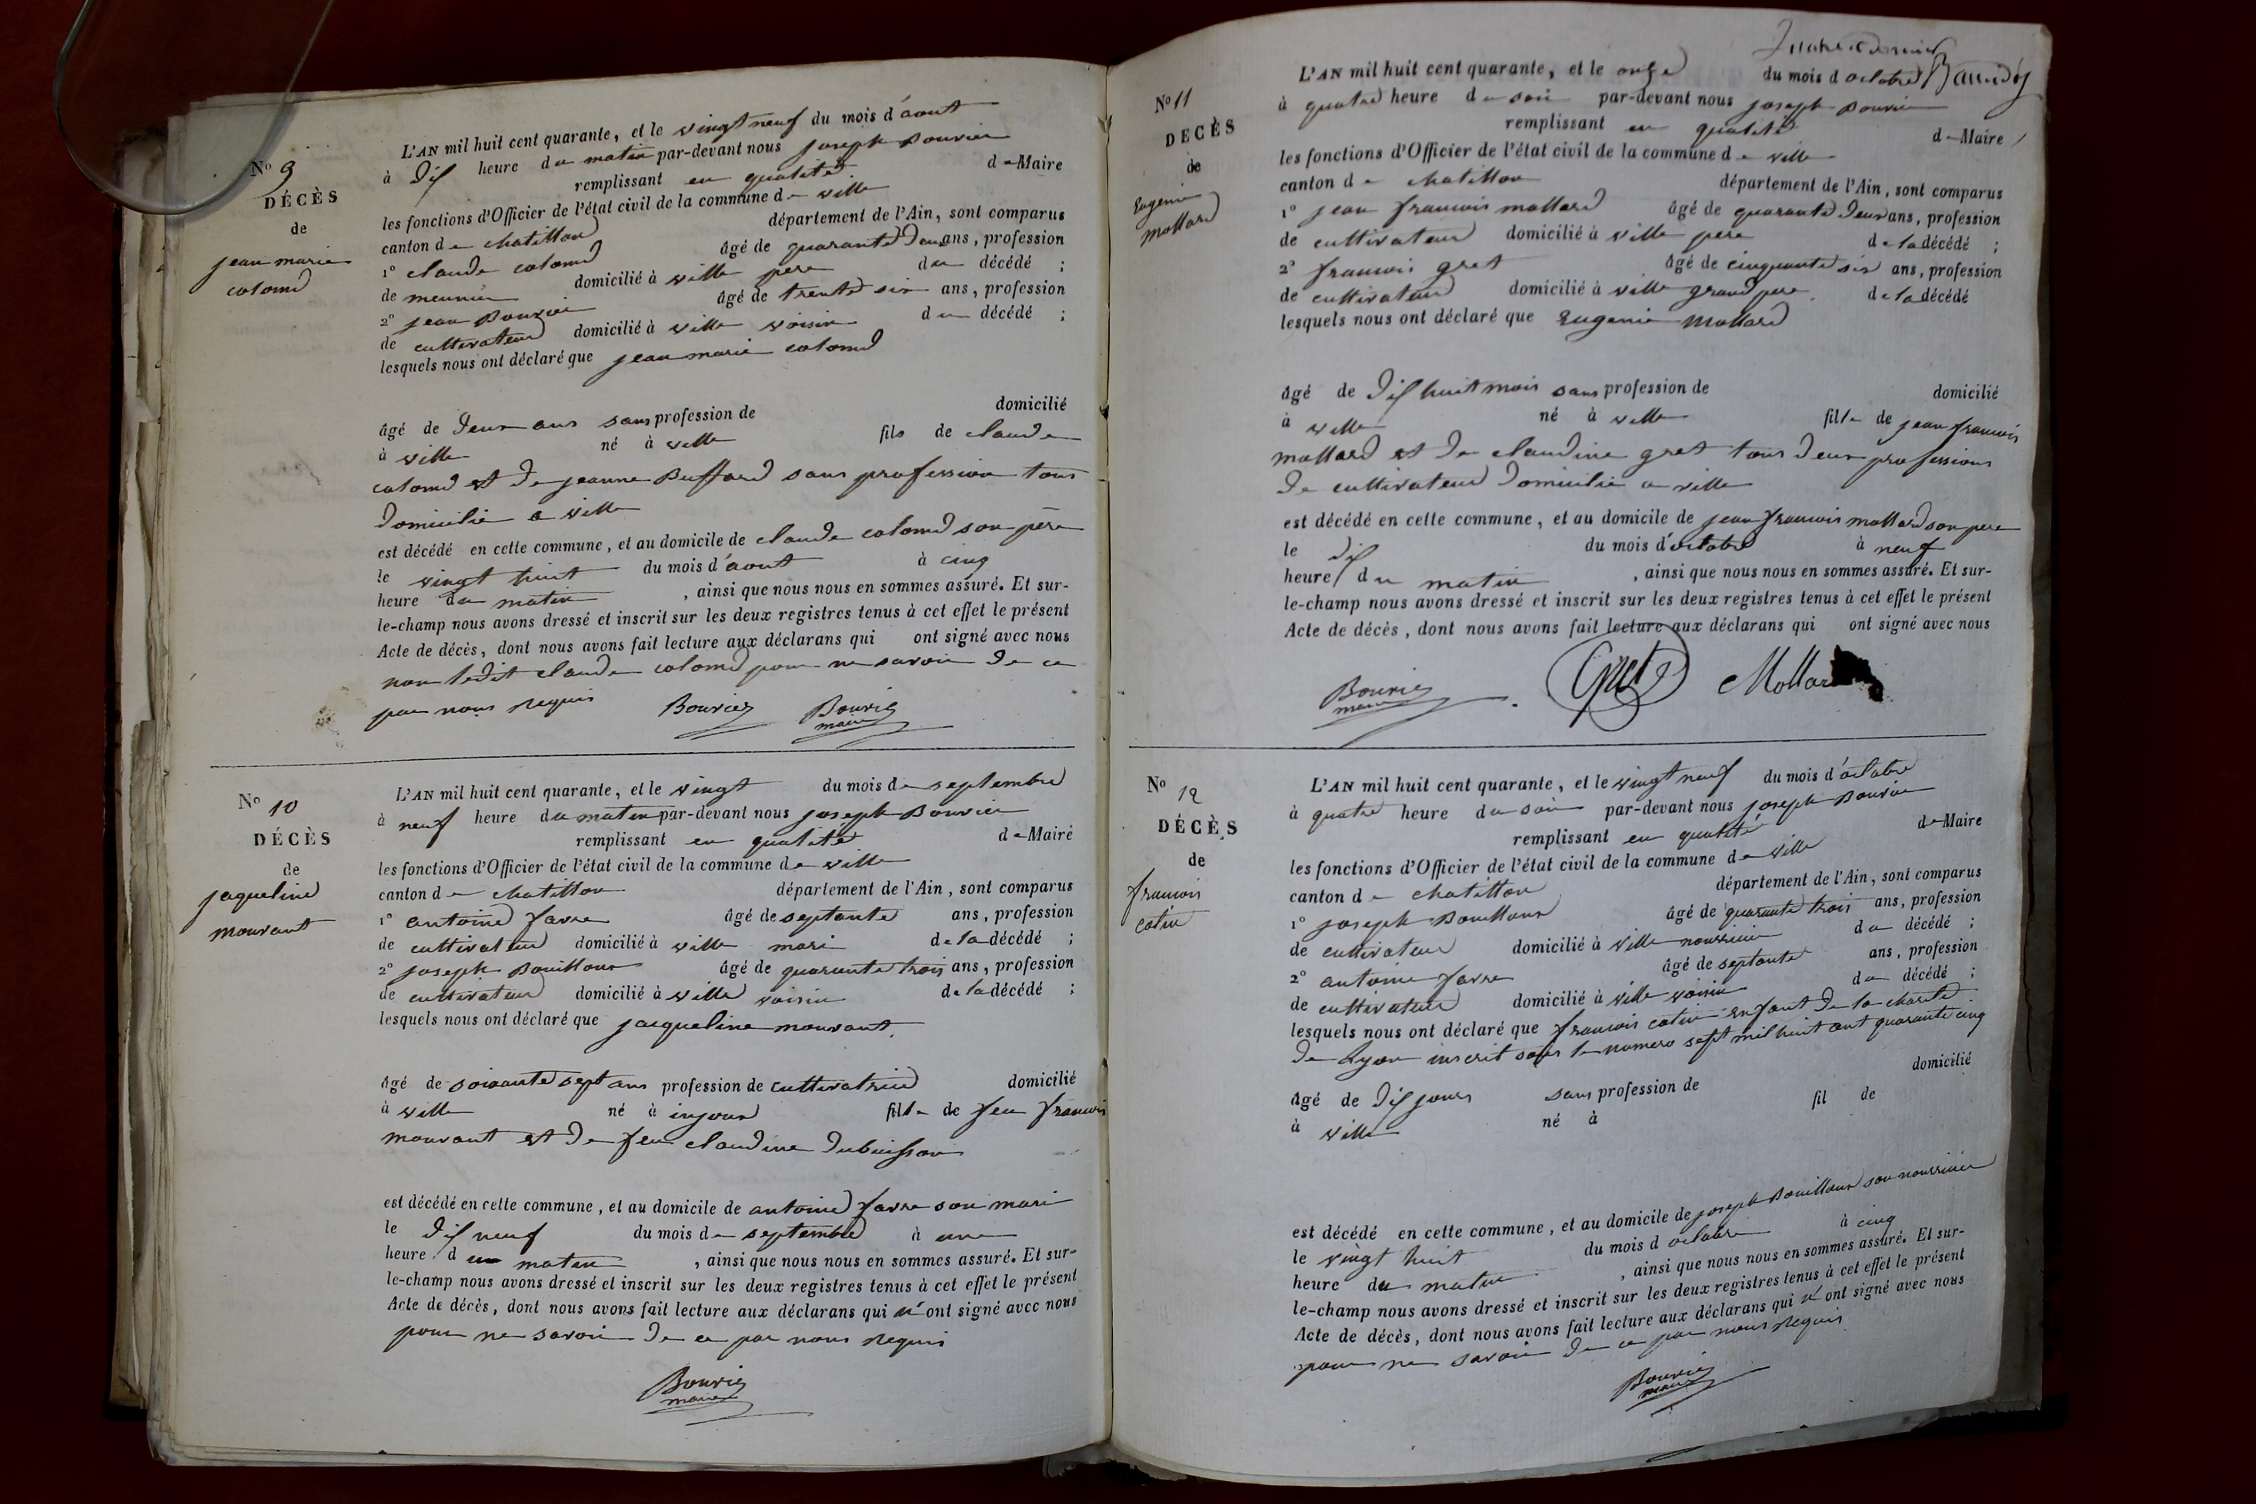 No 9
DÉCÈS
de
jean marie
colomd
L'AN mil huit cent quarante, et le vingt neuf du mois d'aout
à dix heure du matin par-devant nous joseph Bouvier
remplissant en qualité de Maire
les fonctions d'Officier de l'état civil de la commune de ville
canton de chatillon département de l'Ain, sont comparus
1° claude colomd âgé de quarante deux ans, profession
de meunier domicilié à ville pere du décédé ;
2° jean Bouvier âgé de trente six ans, profession
de cultivateur domicilié à ville voisin du décédé ;
lesquels nous ont déclaré que jean marie colomd
âgé de deux ans sans profession de domicilié
à ville né à ville fils de claude
colomd et de jeanne Buffard sans profession tous
domicilié a ville
est décédé en cette commune, et au domicile de claude colomd son père
le vingt huit du mois d'aout à cinq
heure du matin , ainsi que nous nous en sommes assuré. Et sur-
le-champ nous avons dressé et inscrit sur les deux registres tenus à cet effet le présent
Acte de décès, dont nous avons fait lecture aux déclarans qui ont signé avec nous
non ledit claude colomd pour ne savoir de ce
par nous requis Bouvier Bouvier
maire
No 10
DÉCÈS
de
jaqueline
mouvant
L'AN mil huit cent quarante, et le vingt du mois de septembre
à neuf heure du matin par-devant nous joseph Bouvier
remplissant en qualité de Maire
les fonctions d'Officier de l'état civil de la commune de ville
canton de chatillon département de l'Ain, sont comparus
1° antoine favre âgé de septante ans, profession
de cultivateur domicilié à ville mari de la décédé ;
2° joseph Bouilloux âgé de quarante trois ans, profession
de cultivateur domicilié à ville voisin de la décédé ;
lesquels nous ont déclaré que jacqueline mouvant
âgé de soixante sept ans profession de cultivatrice domicilié
à ville né à injoux fille de feu francois
mouvant et de feu claudine dubuisson
est décédé en cette commune, et au domicile de antoine favre son mari
le dix neuf du mois de septembre à une
heure du matin , ainsi que nous nous en sommes assuré. Et sur-
le-champ nous avons dressé et inscrit sur les deux registres tenus à cet effet le présent
Acte de décès, dont nous avons fait lecture aux déclarans qui n'ont signé avec nous
pour ne savoir de ce par nous requis
Bouvier
maire
No 11
DÉCÈS
de
Eugenie
mollard
L'AN mil huit cent quarante, et le onze du mois d octobre
à quatre heure du soir par-devant nous joseph Bouvier
remplissant en qualité de Maire
les fonctions d'Officier de l'état civil de la commune de ville
canton de chatillon département de l'Ain, sont comparus
1° jean francois mollard âgé de quarante deux ans, profession
de cultivateur domicilié à ville pere de la décédé ;
2° francois gret âgé de cinquante six ans, profession
de cultivateur domicilié à ville grand pere de la décédé
lesquels nous ont déclaré que Eugenie mollard
âgé de dix huit mois sans profession de domicilié
à ville né à ville fille de jean francois
mollard et de claudine gret tous deux professions
de cultivateur domicilié a ville
est décédé en cette commune, et au domicile de jean francois mollard son pere
le dix du mois d'octobre à neuf
heure du matin , ainsi que nous nous en sommes assuré. Et sur-
le-champ nous avons dressé et inscrit sur les deux registres tenus à cet effet le présent
Acte de décès, dont nous avons fait lecture aux déclarans qui ont signé avec nous
Bouvier Gret Mollard
maire
No 12
DÉCÈS
de
francois
catin
L'AN mil huit cent quarante, et le vingt neuf du mois d'octobre
à quatre heure du soir par-devant nous joseph Bouvier
remplissant en qualité de Maire
les fonctions d'Officier de l'état civil de la commune de ville
canton de chatillon département de l'Ain, sont comparus
1° joseph Bouilloux âgé de quarante trois ans, profession
de cultivateur domicilié à ville nourricier du décédé ;
2° antoine favre âgé de septante ans, profession
de cultivateur domicilié à ville voisin du décédé ;
lesquels nous ont déclaré que francois catin enfant de la charité
de Lyon inscrit sous le numero sept mil huit cent quarante cinq
âgé de dix jours sans profession de domicilié
à ville né à fil de
est décédé en cette commune, et au domicile de joseph Bouilloux son nourricier
le vingt huit du mois d octobre à cinq
heure du matin , ainsi que nous nous en sommes assuré. Et sur-
le-champ nous avons dressé et inscrit sur les deux registres tenus à cet effet le présent
Acte de décès, dont nous avons fait lecture aux déclarans qui n'ont signé avec nous
pour ne savoir de ce par nous requis
Bouvier
maire